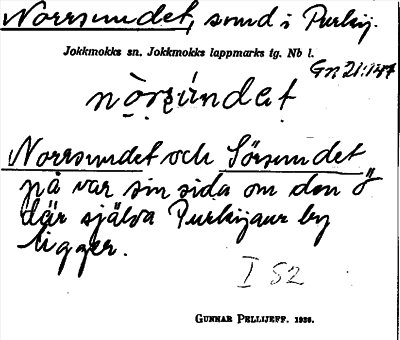 Norrsundet, sund i Purkij.
Jokkmokks sn. Jokkmokks lappmarks tg. Nb l.
Gn 21:147
nòrsúndet
Norrsundet och Sörsundet
på var sin sida om den ö
där själva Purkijaur by
ligger.
I S2
GUNNAR PELLIJEFF. 1936.